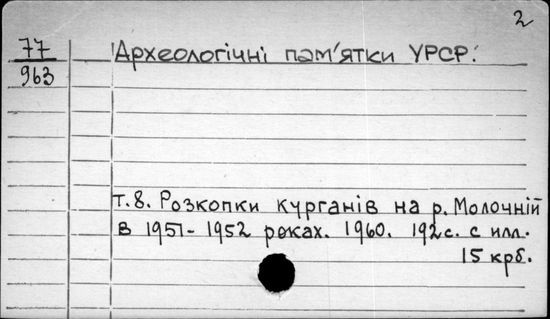 2
77
963
Археологічні пам'ятки УРСР.
т.8. Розкопки курганів на р. Молочній
в 1951-1952 роках. 1960. 192с. с илл.
15 крб.